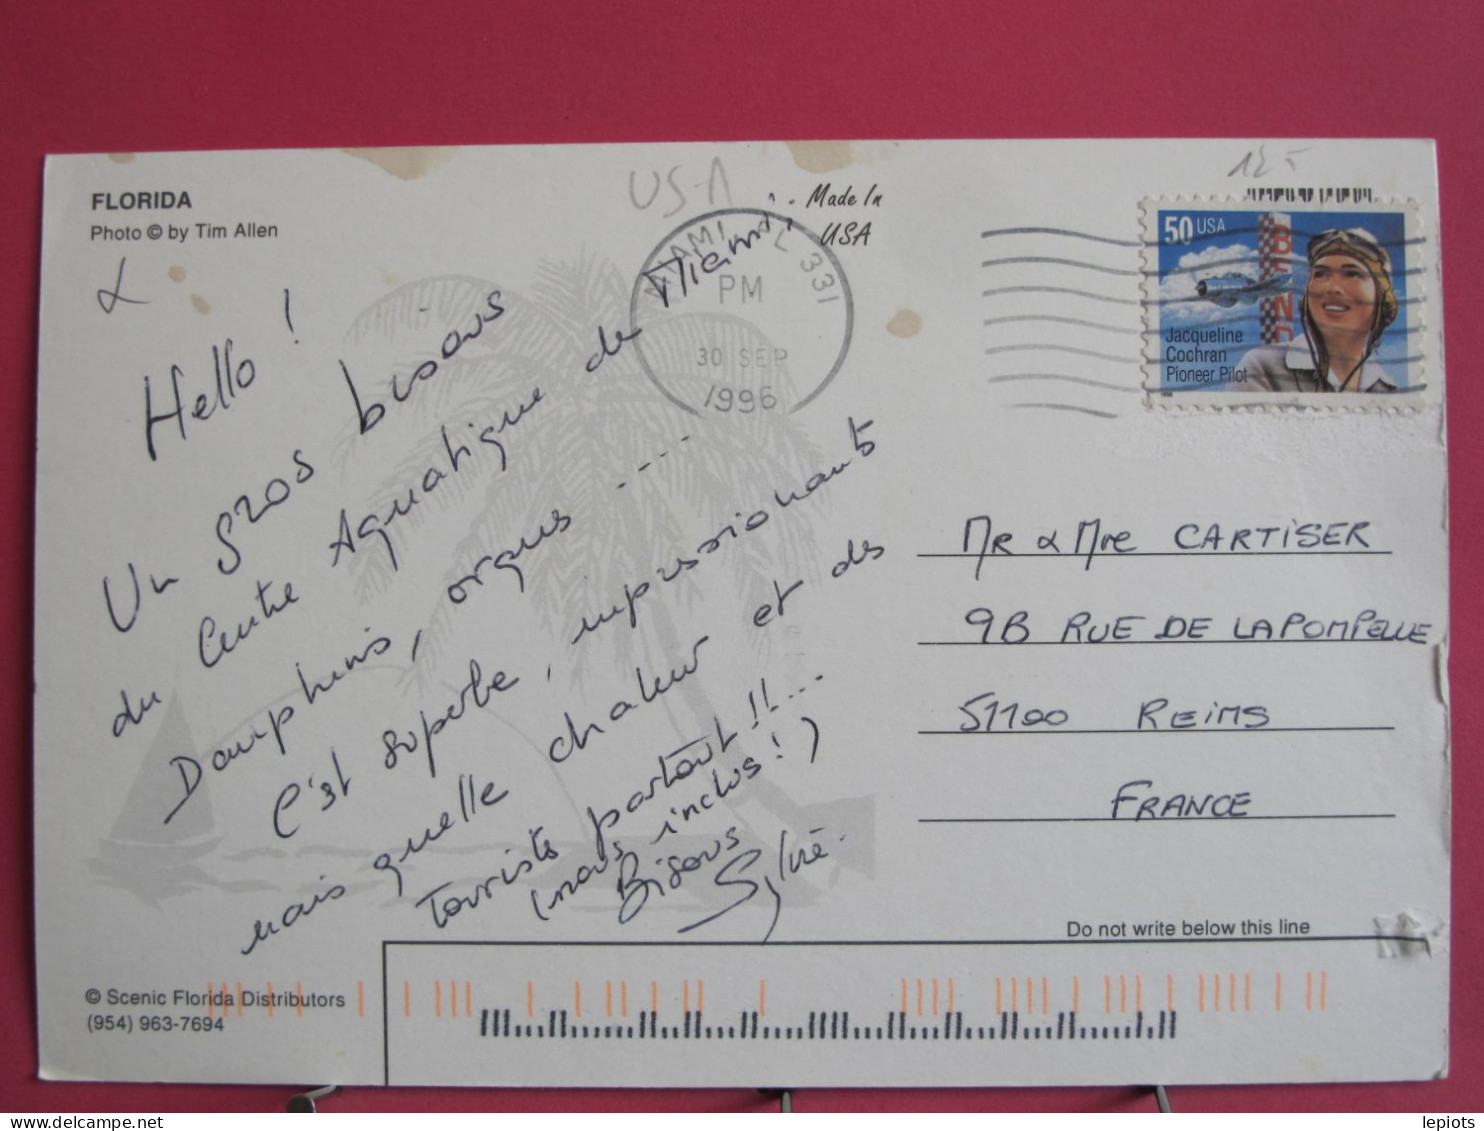 FLORIDA
Photo © by Tim Allen
USA
Made In
USA
125
MIAMI FL 331
PM
30 SEP
1996
50 USA
Jacqueline
Cochran
Pioneer Pilot
Hello !
Un gros bisous
du Centre Aquatique de Miami,
Dauphins, orques ....
C'est superbe, impressionants
mais quelle chaleur et des
touristes partout !!...
(nous inclus !)
Bisous
Sylvie.
MR & Mme CARTISER
9B RUE DE LA POMPELLE
51100 REIMS
FRANCE
Do not write below this line
© Scenic Florida Distributors
(954) 963-7694
lepiots